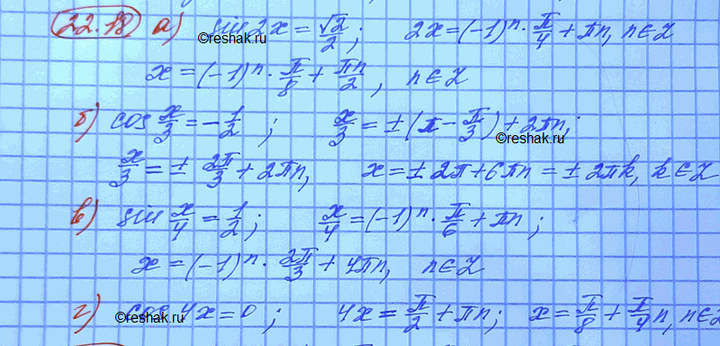 22.18 а) sin 2x = √2/2 ; 2x = (-1)ⁿ · π/4 + πn, n∈Z
©reshak.ru
x = (-1)ⁿ · π/8 + πn/2 , n∈Z
б) cos x/3 = -1/2 ; x/3 = ± (π - π/3) + 2πn;
©reshak.ru
x/3 = ± 2π/3 + 2πn, x = ± 2π + 6πn = ± 2πk, k∈Z
в) sin x/4 = 1/2 ; x/4 = (-1)ⁿ · π/6 + πn ;
x = (-1)ⁿ · 2π/3 + 4πn, n∈Z
г) cos 4x = 0 ; 4x = π/2 + πn; x = π/8 + π/4 n, n∈Z
©reshak.ru